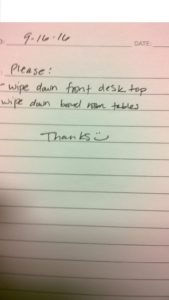 9-16-16
DATE:
Please:
- wipe down front desk top
wipe down board room tables
Thanks :)